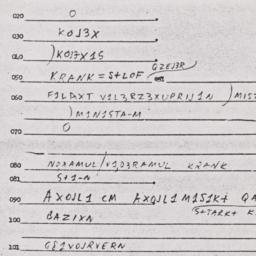 020 O
030 KOJ3X
040 )KOJ7X1S
GZEJ3R
050 KRANK=S+LOF
060 F1LAXT V1L3,RZ3XUPRIJ1N )MIS
)M1N1STA-M
070 O
080 NOXAMUL/V1,O3RAMUL KRANK
081 S+1-N
090 AXOJL1 CM AXOJL1M1S1K+ QA
(S+TARK+ K
100 BAZIXN
101 GE1VOJRVERN